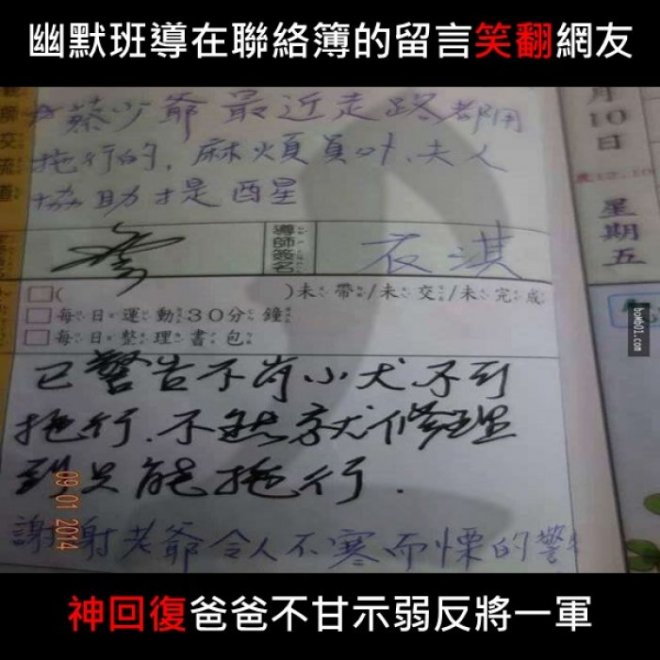 幽默班導在聯絡簿的留言笑翻網友
蔡少爺最近走路都用
拖行的,麻煩員外、夫人
協助才是 酉星
導師簽名
衣淇
( )未帶/未交/未完成
每日運動30分鐘
每日整理書包
月
10
日
星期五
已警告不肖小犬不可
拖行.不然就修理
到只能拖行.
謝謝老爺令人不寒而慄的警
09 01 2014
bomb01.com
神回復爸爸不甘示弱反將一軍